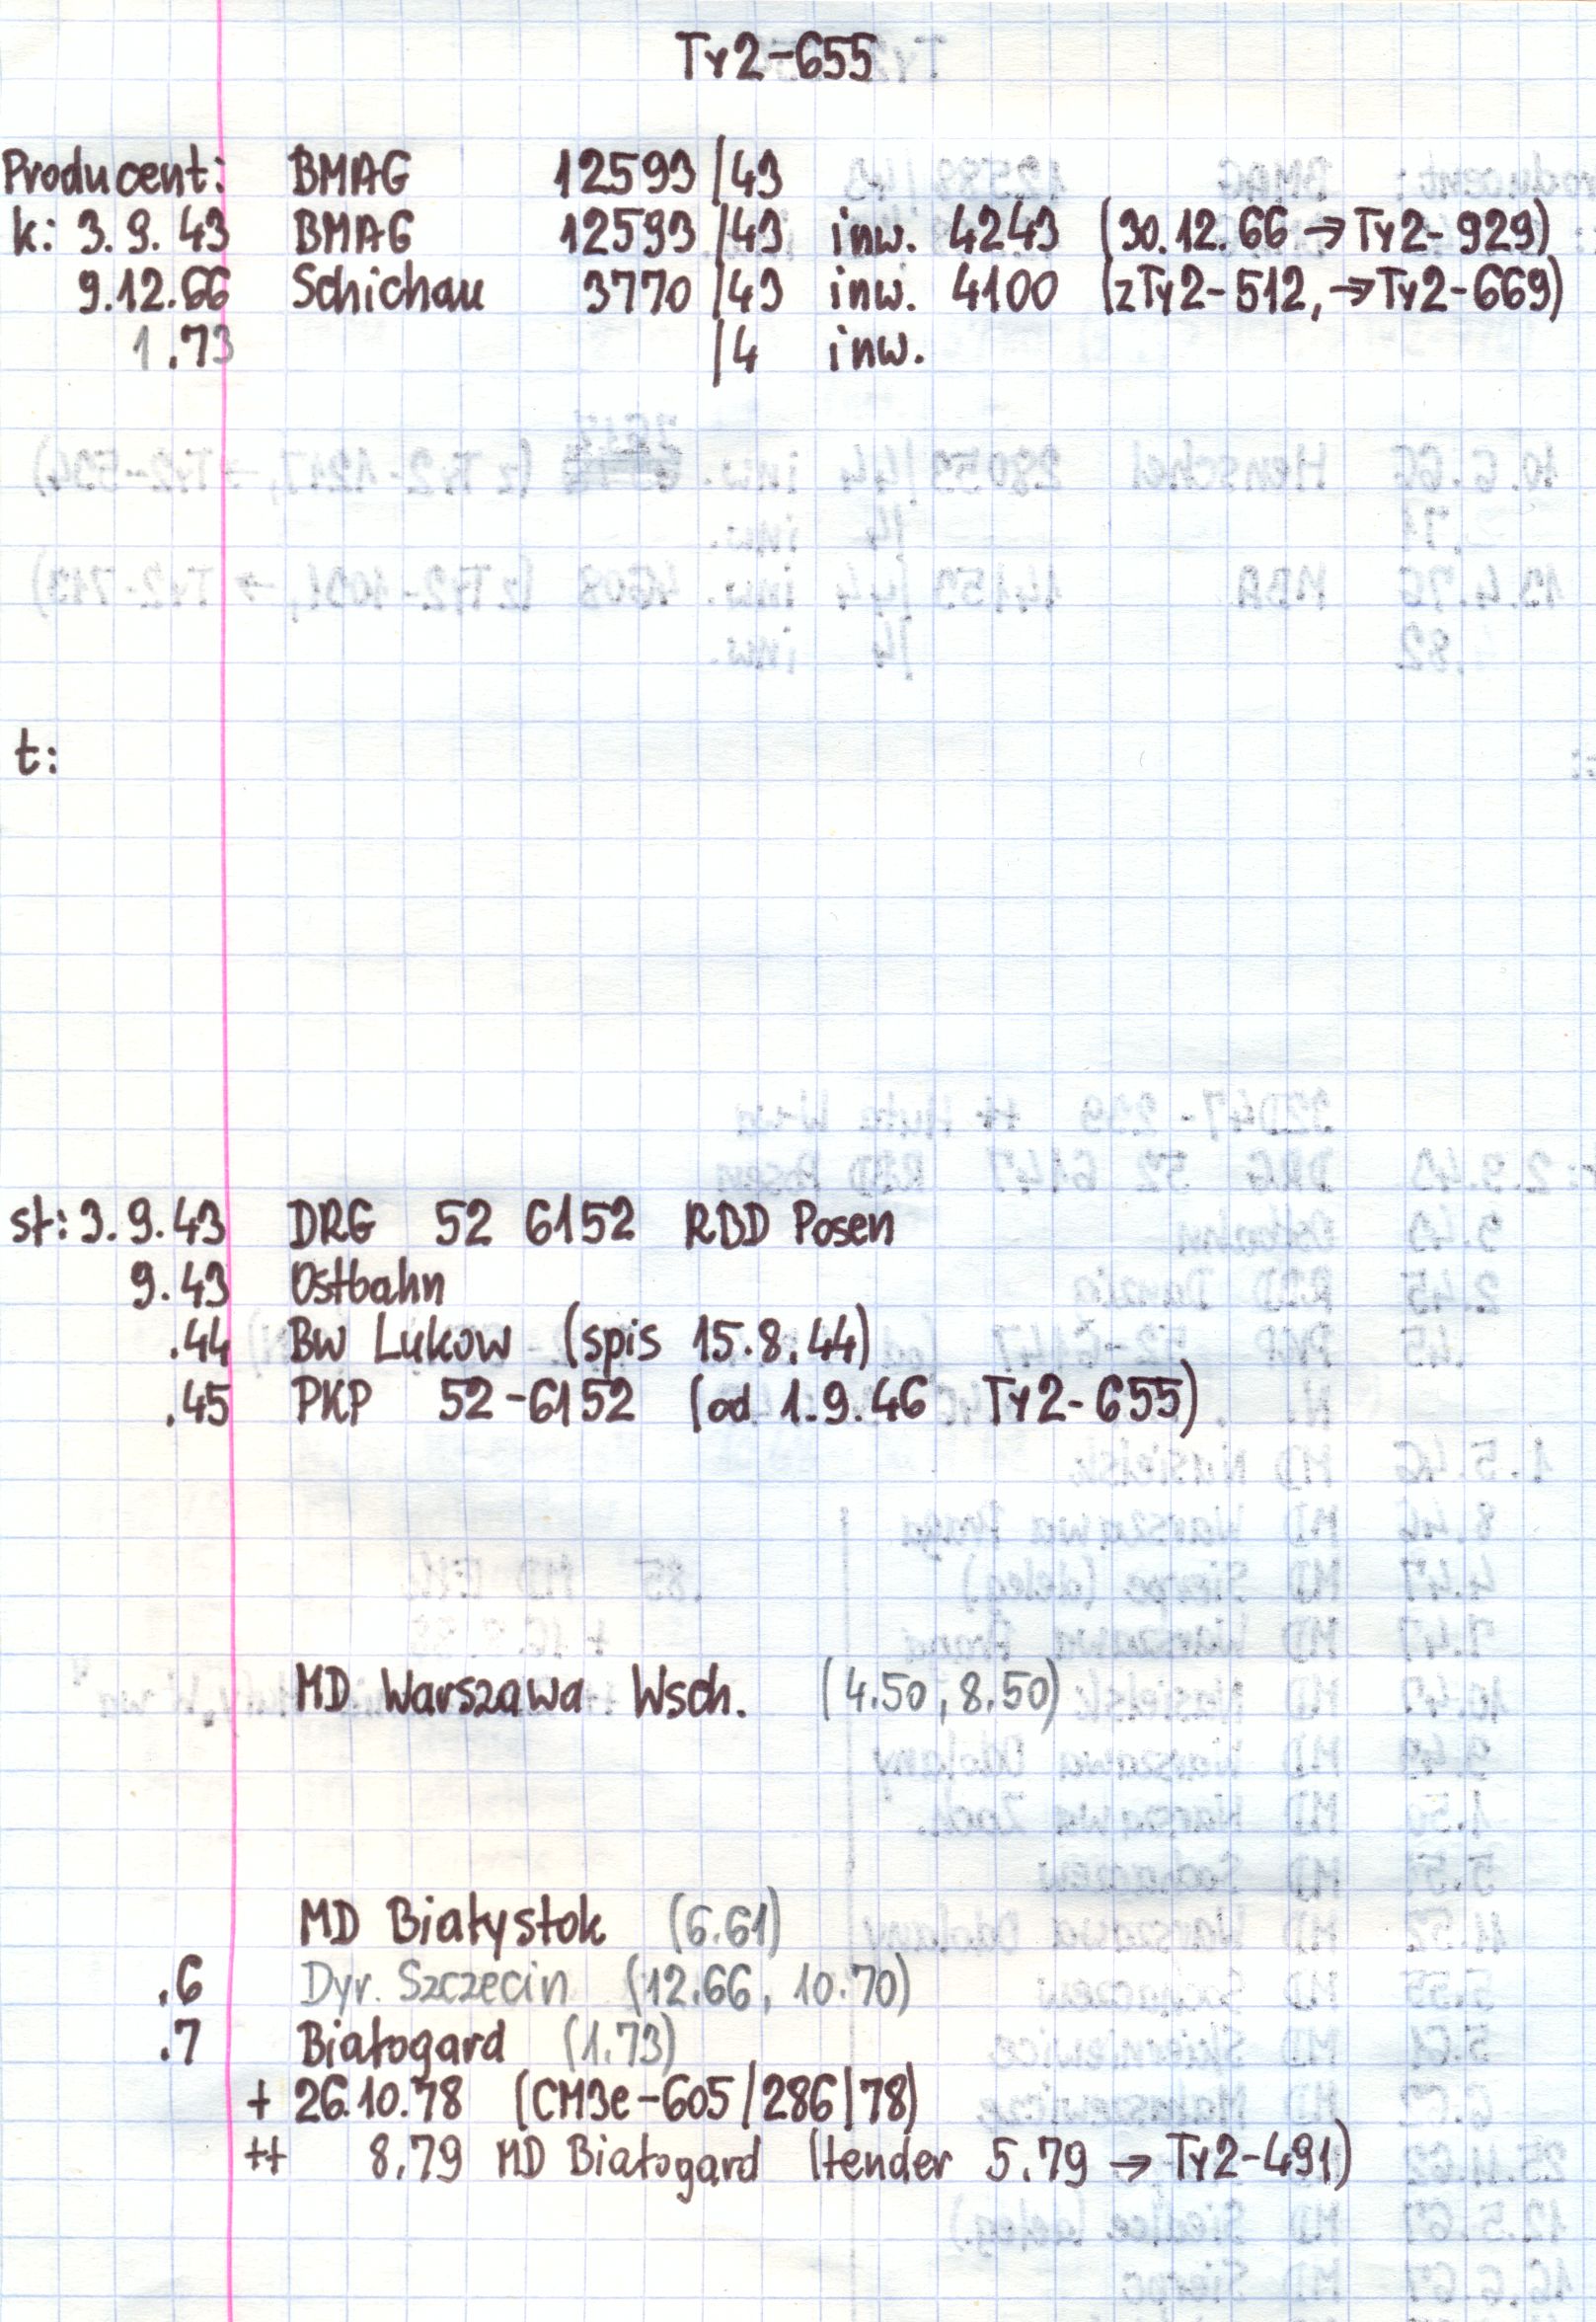 Ty2-655
Producent: BMAG 12593/43
k: 3.9.43 BMAG 12593/43 inw. 4243 (30.12.66 → Ty2-929)
9.12.66 Schichau 3770/43 inw. 4100 (z Ty2-512, → Ty2-669)
1.73 /4 inw.
t:
st: 3.9.43 DRG 52 6152 RBD Posen
9.43 Ostbahn
.44 BW Lukow (spis 15.8.44)
.45 PKP 52-6152 (od 1.9.46 Ty2-655)
MD Warszawa Wsch. (4.50, 8.50)
MD Białystok (6.61)
.6 Dyr. Szczecin (12.66, 10.70)
.7 Białogard (1.73)
+ 26.10.78 (CM3e-605/286/78)
++ 8.79 MD Białogard (tender 5.79 → Ty2-491)